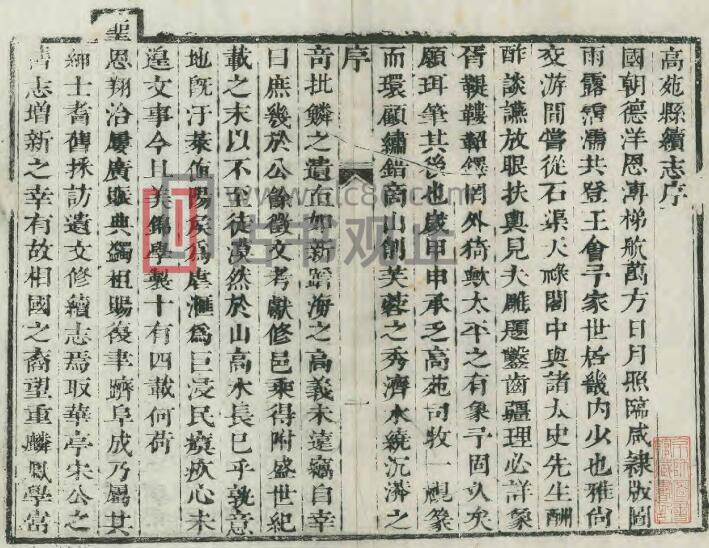 高苑縣續志序
國朝德洋恩溥梯航萬方日月照臨咸隸版圖
雨露霑濡共登王會予家世居畿內少也雅尙
交游間嘗從石渠天祿閣中與諸太史先生酬
酢談讌放眼扶輿見夫雕題鑿齒疆理必詳象
胥鞮鞻軺鐸罔外猗歟太平之有象予固久矣
願珥筆其後也歲甲申承乏高苑司牧一視篆
而環顧繡錯商山削芙蓉之秀濟水繞沉漭之
序
一
奇批鱗之遺直如新蹈海之高義未遠竊自幸
曰庶幾於公餘徵文考獻修邑乘得附盛世紀
載之末以不至徒漠然於山高水長已乎孰意
地旣汙萊値陽矦爲虐滙爲巨浸民瘼疚心未
遑文事今且美錦學製十有四載何荷
聖恩翔洽屢廣賑典蠲租賜復聿躋阜成乃屬其
紳士耆舊採訪遺文修續志焉取華亭宋公之
舊志增新之幸有故相國之裔望重麟鳳學富
古书观止